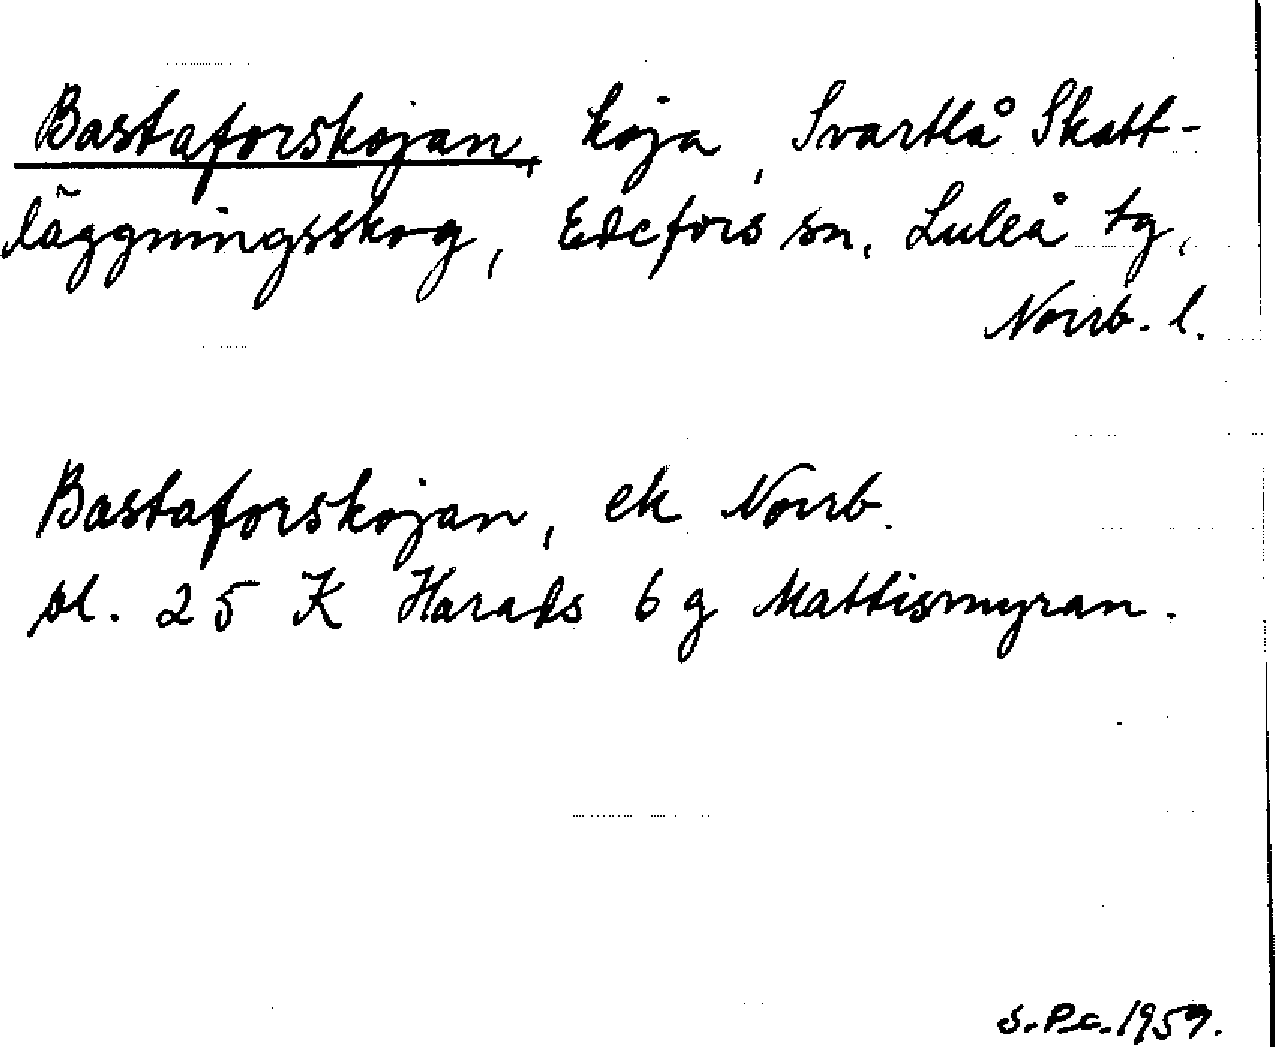 Bastaforskojan, koja, Svartlå Skatt-
läggningsskog, Edefors sn. Luleå tg,
Norrb. l.
Bastaforskojan, ek Norrb.
bl. 25 K Harads 6 g Mattismyran.
S.P.c. 1959.